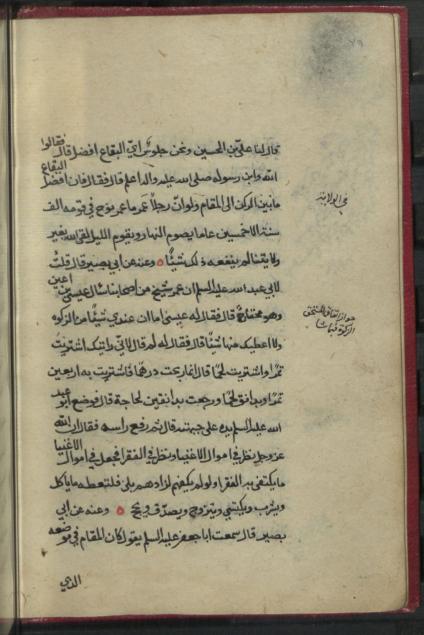 ٧٩
قال لنا علي بن الحسين ونحن جلوس اي البقاع افضل قال فقالوا
الله وابن رسوله صلى الله عليه واله اعلم قال فقال فان افضل البقاع
ما بين الركن الى المقام ولو ان رجلا عمر ما عمر نوح في قومه الف
سنة الا خمسين عاما يصوم النهار ويقوم الليل لقي الله بغير
ولايتنا لم ينفعه ذلك شيئا وعنه عن ابي بصير قال قلت
لابي عبد الله عليه السلم ان عمر شيخ من اصحابنا سال عيسى بن اعين
وهو محتاج قال فقال له عيسى اما ان عندي شيئا من الزكوة
ولا اعطيك منها شيئا قال فقال له لم قال لاني رايتك اشتريت
تمرا واشتريت لحما قال انما ربحت درهما فاشتريت به اربعين
تمرا وبدانق لحما ورجعت بدانقين لحاجة قال فوضع ابو عبد
الله عليه السلم يده على جبهته قال ثم رفع راسه فقال ان الله
عز وجل نظر في اموال الاغنيا ونظر في الفقرا فجعل في اموال الاغنيا
ما يكتفي به الفقرا ولو لم يكفهم لزادهم بلى فلتعطه ما ياكل
ويشرب ويكتسي ويتزوج ويصدق ويحج وعنه عن ابي
بصير قال سمعت ابا جعفر عليه السلم يقول كان المقام في موضعه
الذي
في الولاية
الزكوة